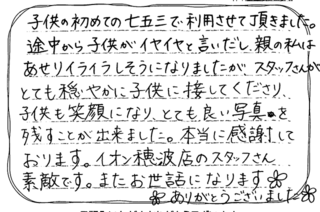 子供の初めての七五三で利用させて頂きました。
途中から子供がイヤイヤと言いだし、親の私は
あせりイライラしそうになりましたが、スタッフさんが
とても穏やかに子供に接してくださり、
子供も笑顔になり、とても良い写真を
残すことが出来ました。本当に感謝して
おります。イオン穂波店のスタッフさん
素敵です。またお世話になります
ありがとうございました